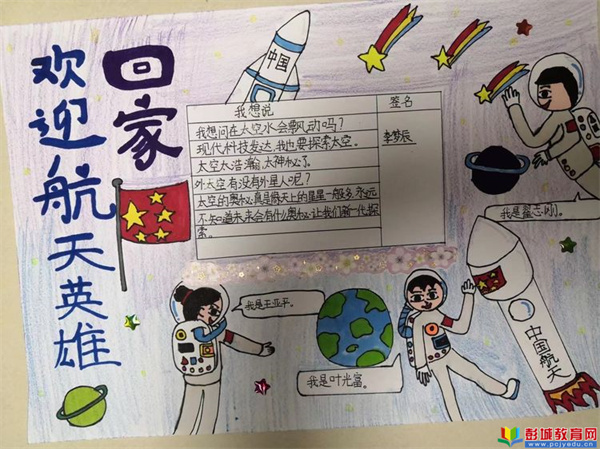 欢迎航天英雄
回家
中国
我想说
签名
我想问在太空水会飘动吗?
现代科技发达,我也要探索太空。
李梦辰
太空太浩瀚,太神秘了。
外太空有没有外星人呢?
太空的奥秘真是像天上的星星一般多,永远
不知道未来会有什么奥秘,让我们新一代探
索。
我是翟志刚。
我是王亚平。
我是叶光富。
中国航天
彭城教育网
www.pcjyedu.cn